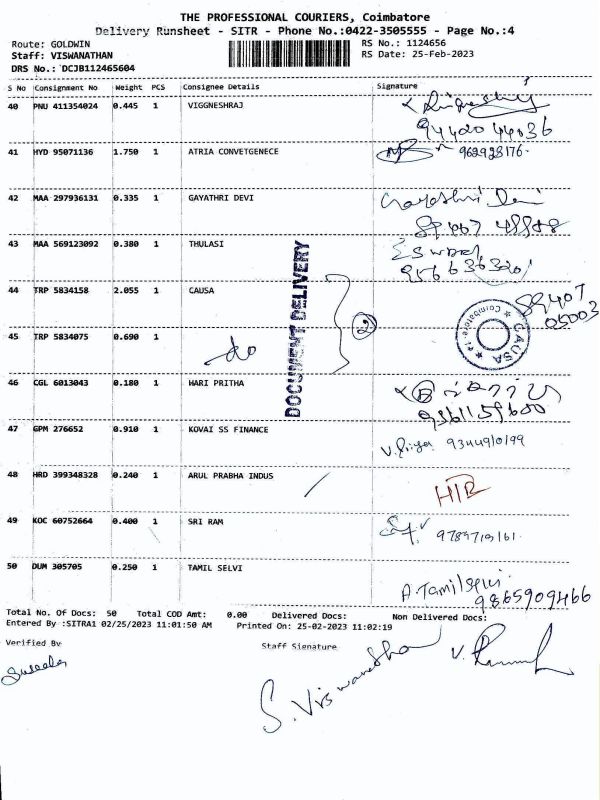 THE PROFESSIONAL COURIERS, Coimbatore
Delivery Runsheet - SITR - Phone No.:0422-3505555 - Page No.:4
Route: GOLDWIN RS No.: 1124656
Staff: VISWANATHAN RS Date: 25-Feb-2023
DRS No.: DCJB112465604
S No Consignment No Weight PCS Consignee Details Signature
40 PNU 411354024 0.445 1 VIGGNESHRAJ
41 HYD 95071136 1.750 1 ATRIA CONVETGENECE
962928176
42 MAA 297936131 0.335 1 GAYATHRI DEVI Gayathri Devi
43 MAA 569123092 0.380 1 THULASI
44 TRP 5834158 2.055 1 CAUSA 89407
05003
DOCUMENT DELIVERY
2
CAUSA
Coimbatore
45 TRP 5834075 0.690 1 do
46 CGL 6013043 0.180 1 HARI PRITHA
9361159600
47 GPM 276652 0.910 1 KOVAI SS FINANCE
V. Priya 9344910199
48 HRD 399348328 0.240 1 ARUL PRABHA INDUS
49 KOC 60752664 0.400 1 SRI RAM
9789719161
50 DUM 305705 0.250 1 TAMIL SELVI
A.Tamilselvi
9865909466
Total No. Of Docs: 50 Total COD Amt: 0.00 Delivered Docs: Non Delivered Docs:
Entered By :SITRA1 02/25/2023 11:01:50 AM Printed On: 25-02-2023 11:02:19
Verified By Staff Signature
S. Viswanathan